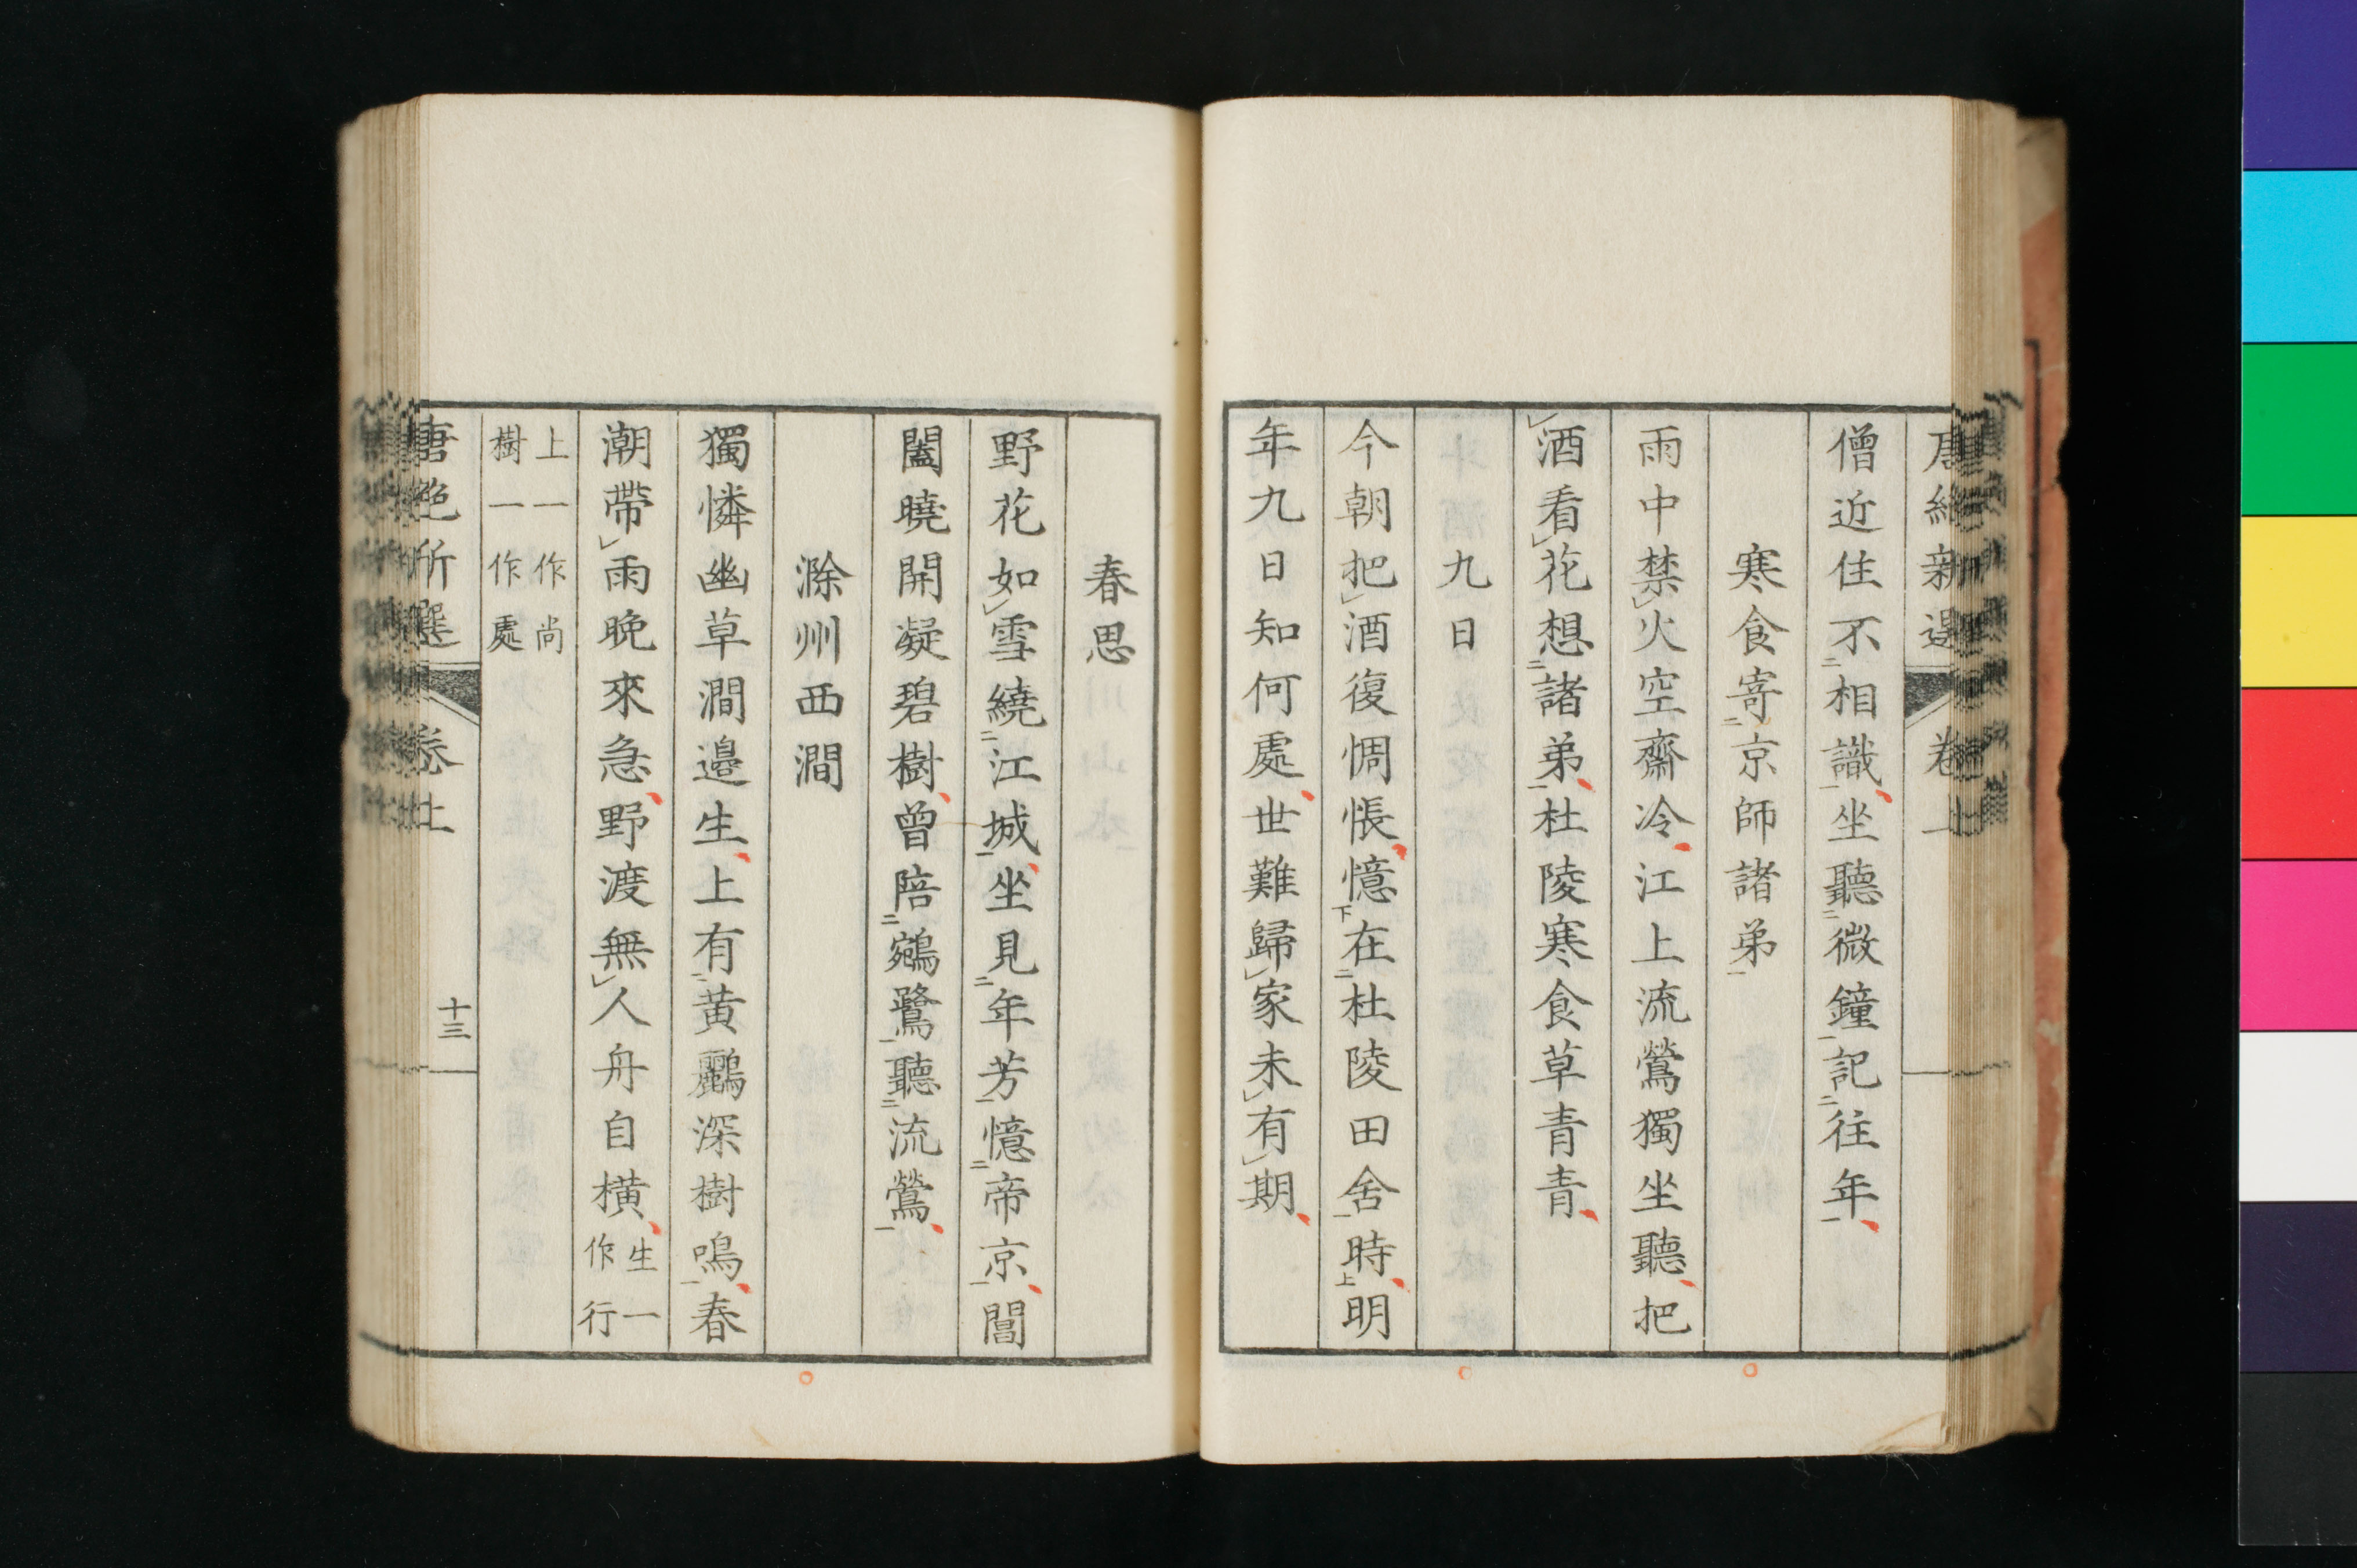 僧近住不相識坐聽微鐘記往年
寒食寄京師諸弟
雨中禁火空齋冷江上流鶯獨坐聽把
酒看花想諸弟杜陵寒食草青青
九日
今朝把酒復惆悵憶在杜陵田舍時明
年九日知何處世難歸家未有期
春思
野花如雪繞江城坐見年芳憶帝京閶
闔曉開凝碧樹曾陪鵷鷺聽流鶯
滁州西澗
獨憐幽草澗邉生上有黃鸝深樹鳴春
潮帶雨晚來急野渡無人舟自橫生一作行
上一作尚
樹一作處
卷上
十三